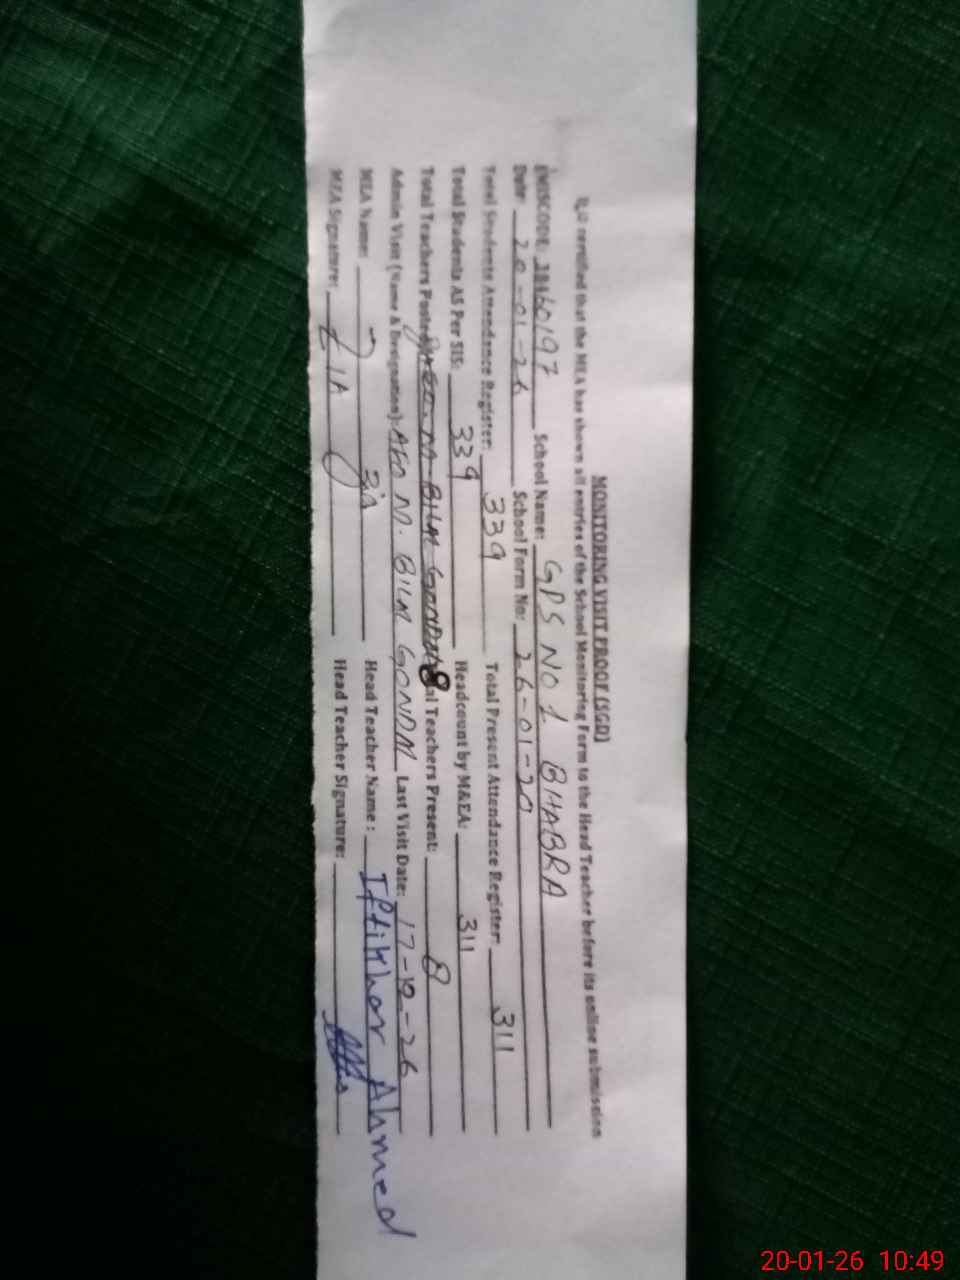 MONITORING VISIT PROOF (SGD)
It is certified that the MEA has shown all entries of the School Monitoring Form to the Head Teacher before its online submission
EMISCODE: 38460197 School Name: GPS NO 1 BHABRA
Date: 20-01-26 School Form No: 26-01-20
Total Students Attendance Register: 339 Total Present Attendance Register: 311
Total Students AS Per SIS: 339 Headcount by M&EA: 311
Total Teachers Posted: 8 Teachers Present: 8
Admin Visit (Name & Designation): AEO M. BILAL GONDAL Last Visit Date: 17-12-26
MEA Name: Zia Head Teacher Name: Iftikhar Ahmed
MEA Signature: ZIA Head Teacher Signature:
20-01-26 10:49